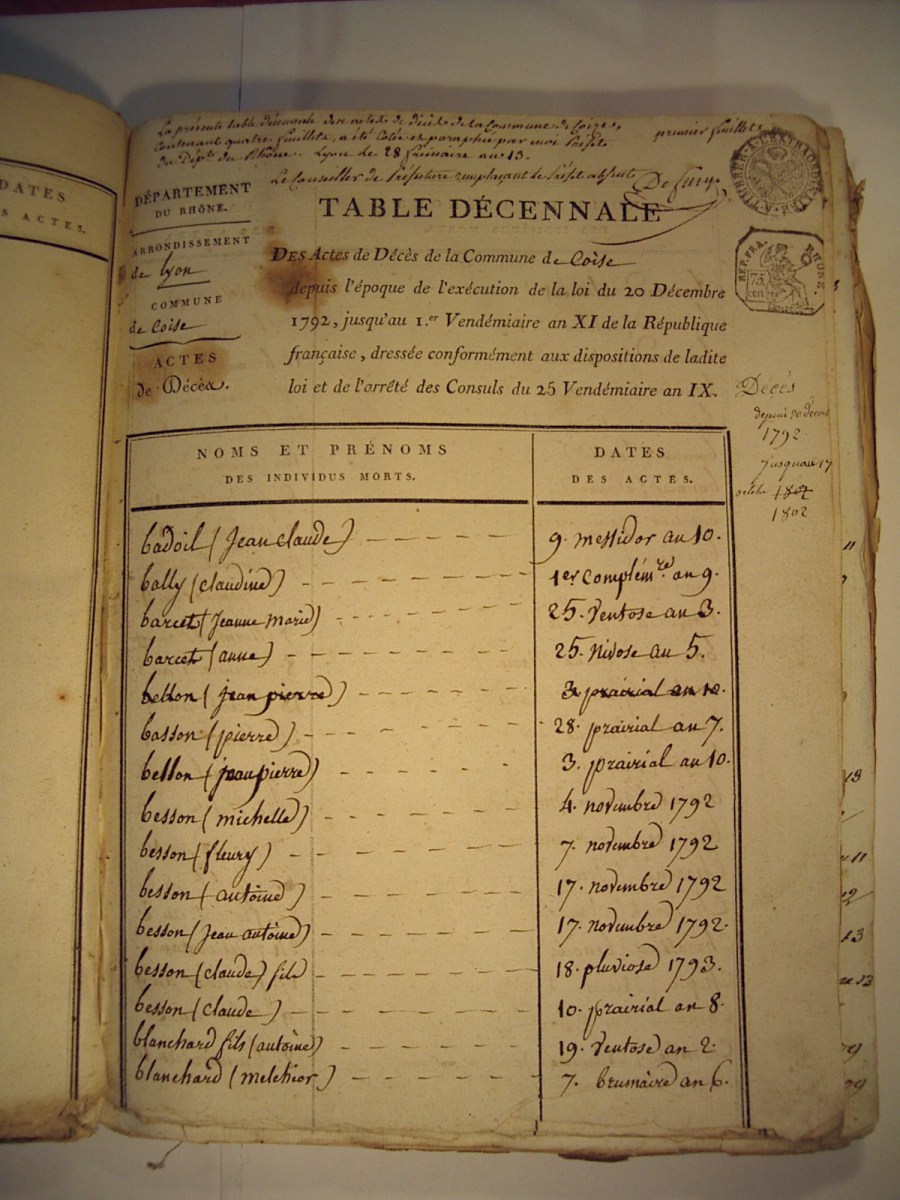 DATES
DES ACTES.
La présente table décennale des actes de décès de la Commune de Coize,
Contenant quatre feuillets, a été Cotée et paraphée par moi Préfet
du Dépt. du Rhône. Lyon le 28 frimaire an 13.
premier feuillet
Le Conseiller de Préfecture remplaçant le Préfet absent
DÉPARTEMENT
DU RHÔNE.
ARRONDISSEMENT
de Lyon
COMMUNE
de Coise
ACTES
de Décès.
TABLE DÉCENNALE
DES Actes de Décès de la Commune de Coise
depuis l'époque de l'exécution de la loi du 20 Décembre
1792, jusqu'au 1.er Vendémiaire an XI de la République
française, dressée conformément aux dispositions de ladite
loi et de l'arrêté des Consuls du 25 Vendémiaire an IX.
REP. FRA.
RHONE.
75
cen
Décès
depuis 20 decemb
1792
jusquau 17
octobre 1802
1802
NOMS ET PRÉNOMS
DES INDIVIDUS MORTS.
DATES
DES ACTES.
badoil (Jean claude) 9. messidor au 10.
bally (claudine) 1er complém.re an 9.
barcet (Jeanne marie) 25. ventose au 3.
barcet (anne) 25. nivose au 5.
bellon (jean pierre) 3 prairial an 10.
basson (pierre) 28. prairial an 7.
bellon (jean pierre) 3. prairial au 10.
besson (michelle) 4. novembre 1792
besson (fleury) 7. novembre 1792
besson (antoine) 17. novembre 1792
besson (jean antoine) 17. novembre 1792.
besson (claude) fils 18. pluviose 1793.
besson (claude) 10. prairial an 8.
blanchard fils (antoine) 19. ventose an 2.
blanchard (melchior) 7. brumaire an 6.